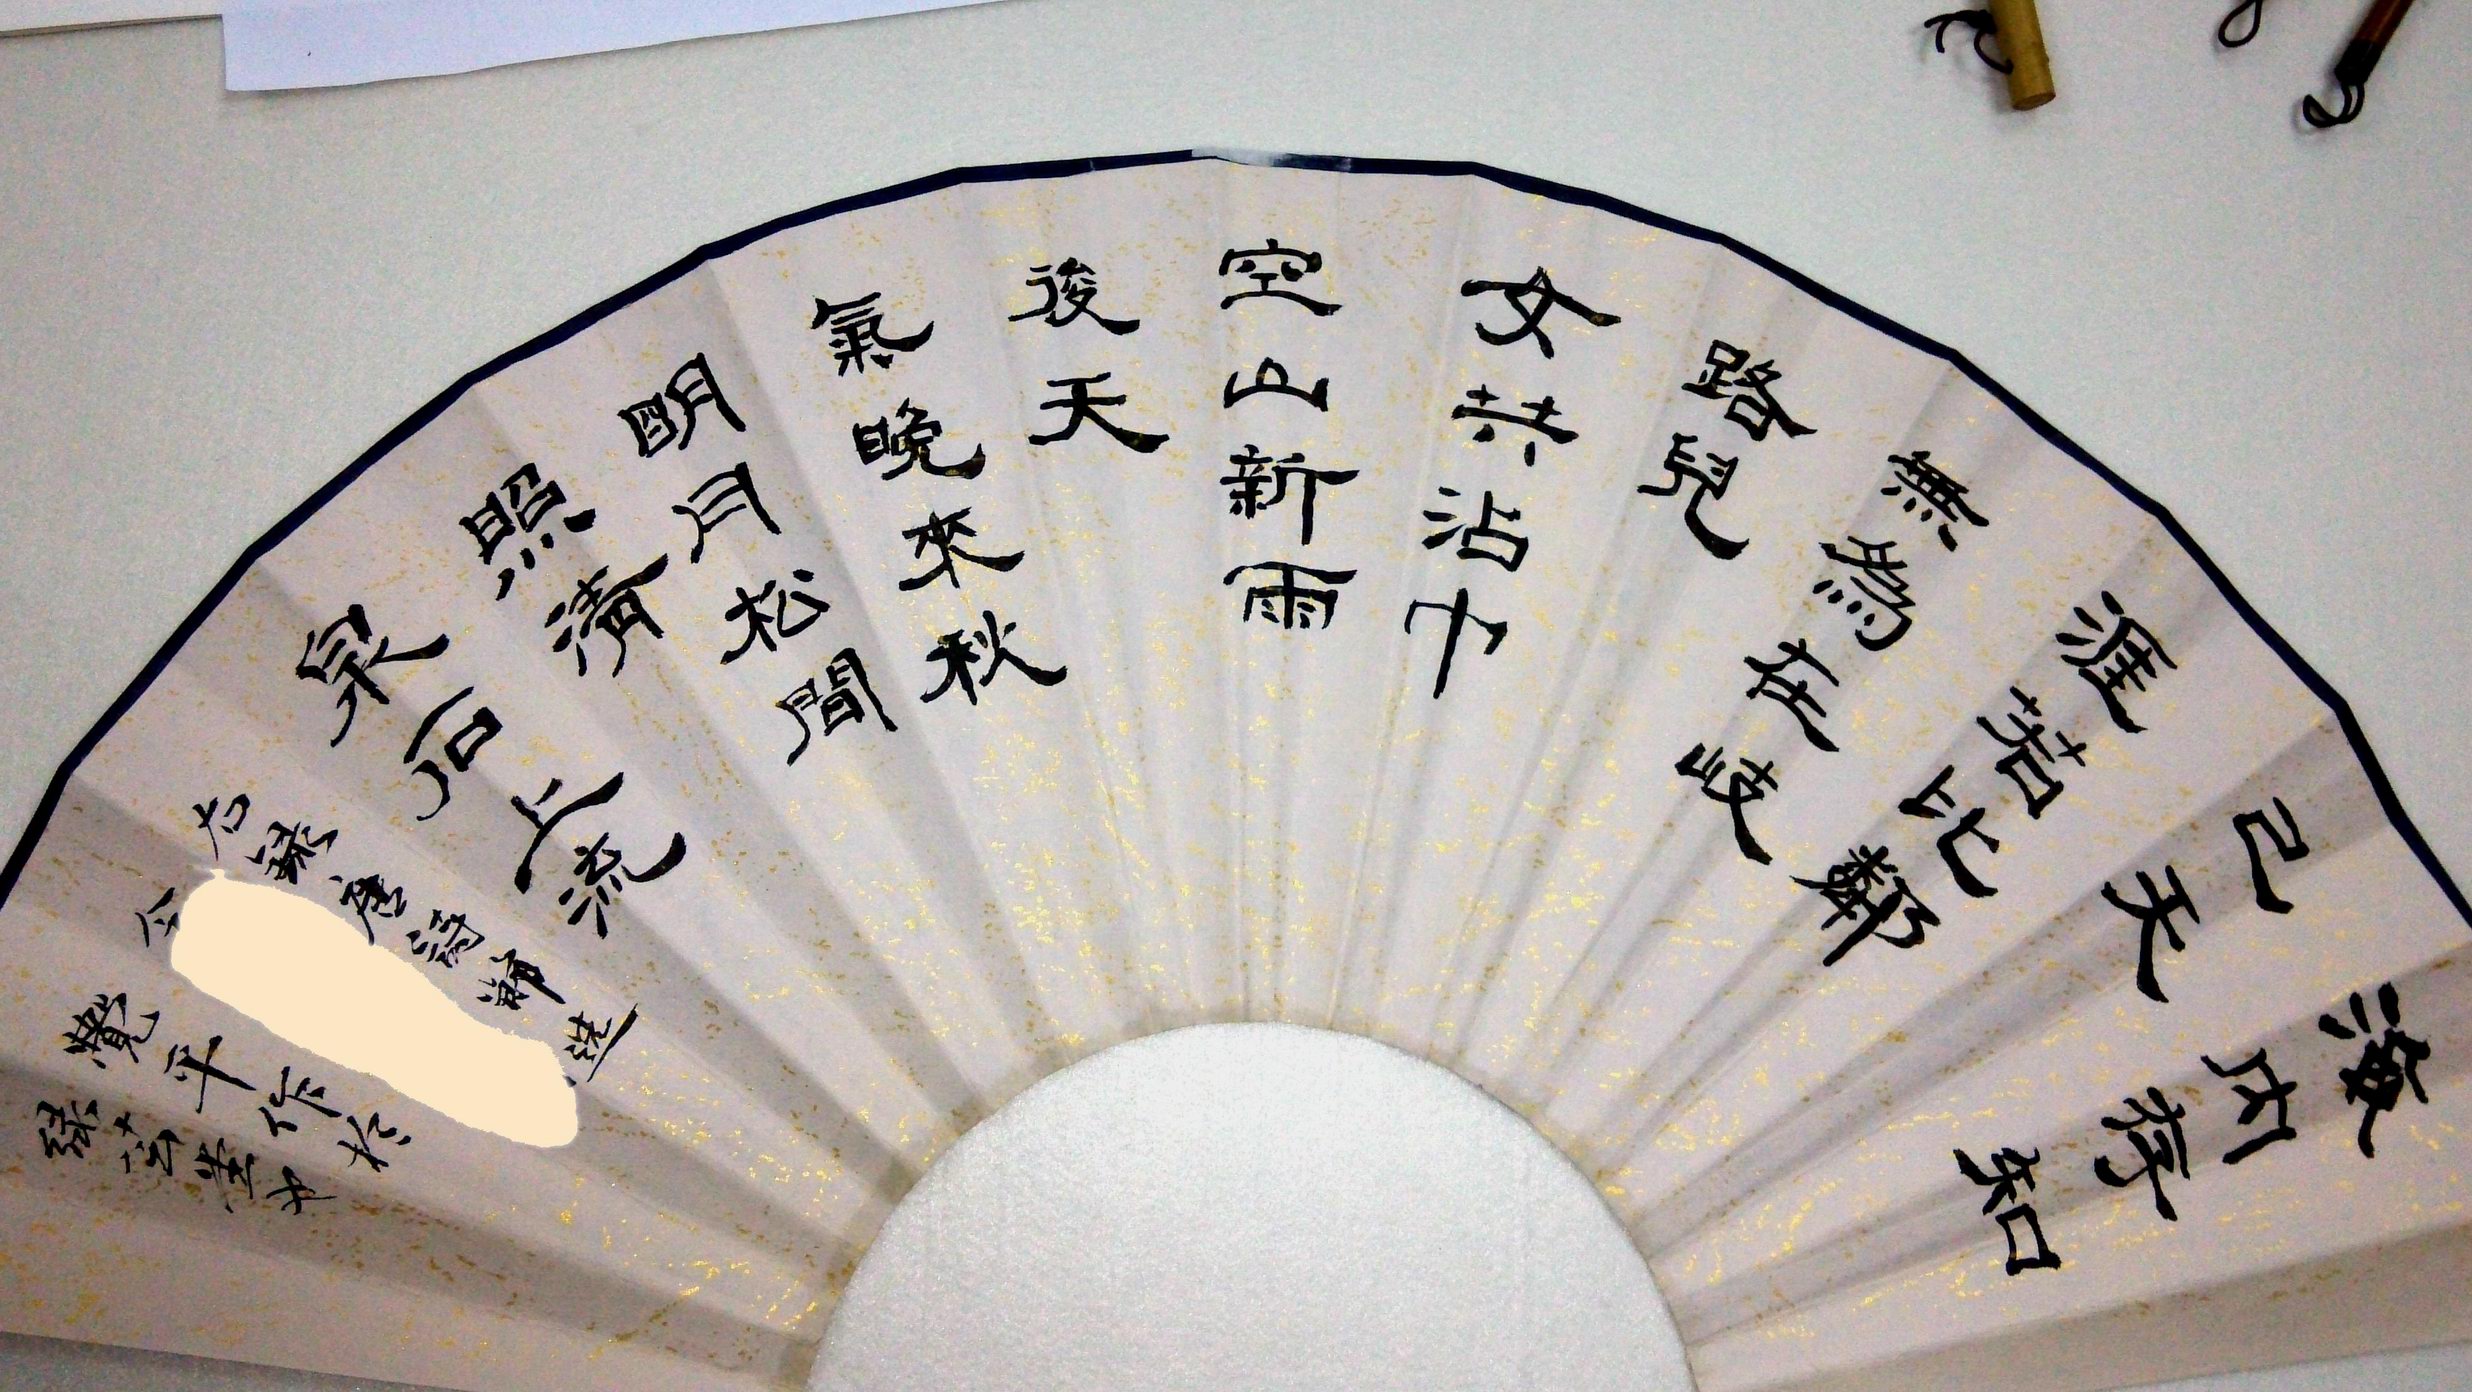 海內存知
己天
涯若比鄰
無為在歧
路兒
女共沾巾
空山新雨
後天
氣晚來秋
明月松間
照清
泉石上流
右錄唐詩精選
平作於